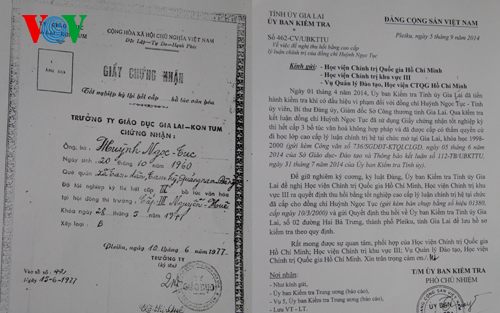 VOV
CỘNG HÒA XÃ HỘI CHỦ NGHĨA VIỆT NAM
Độc Lập - Tự Do - Hạnh Phúc
GIẤY CHỨNG NHẬN
Tốt nghiệp kỳ thi hết cấp bổ túc văn hóa
TRƯỞNG TY GIÁO DỤC GIA LAI - KON TUM
CHỨNG NHẬN :
Ông, bà : Huỳnh Ngọc Tục
Sinh ngày 20 tháng 10 năm 1960
Quê quán
Đã tốt nghiệp kỳ thi hết cấp III bổ túc văn hóa
tại hội đồng thi trường : Cấp III Nguyễn Huệ
Khóa ngày 28 tháng 5 năm 1977
Xếp loại : B
Pleiku, ngày 10 tháng 6 năm 1977
TRƯỞNG TY
Vào sổ số : 442
Ngày : 15-6-1977
TỈNH ỦY GIA LAI
ỦY BAN KIỂM TRA
Số 462-CV/UBKTTU
Về việc đề nghị thu hồi bằng cao cấp
lý luận chính trị của đồng chí Huỳnh Ngọc Tục
ĐẢNG CỘNG SẢN VIỆT NAM
Pleiku, ngày 3 tháng 9 năm 2014
Kính gửi: - Học viện Chính trị Quốc gia Hồ Chí Minh
- Học viện Chính trị khu vực III
- Vụ Quản lý Đào tạo, Học viện CTQG Hồ Chí Minh
Ngày 01 tháng 4 năm 2014, Ủy ban Kiểm tra Tỉnh ủy Gia Lai đã tiến
hành kiểm tra khi có dấu hiệu vi phạm đối với đồng chí Huỳnh Ngọc Tục - Tỉnh
ủy viên, Bí thư Đảng ủy, Giám đốc Sở Công thương tỉnh Gia Lai. Qua kiểm tra
kết luận đồng chí Huỳnh Ngọc Tục đã sử dụng Giấy chứng nhận tốt nghiệp kỳ
thi hết cấp 3 bổ túc văn hóa không hợp pháp và đã được cấp có thẩm quyền cử
đi học lớp cao cấp lý luận chính trị hệ tại chức mở tại Gia Lai, khóa học 1998-
2000 (gửi kèm Công văn số 736/SGDĐT-KTQLCLGD, ngày 05 tháng 6 năm
2014 của Sở Giáo dục- Đào tạo và Thông báo kết luận số 112-TB/UBKTTU,
ngày 31 tháng 7 năm 2014 của Ủy ban Kiểm tra Tỉnh ủy).
Để giữ nghiêm kỷ cương, kỷ luật Đảng, Ủy ban Kiểm tra Tỉnh ủy Gia
Lai đề nghị Học viện Chính trị Quốc gia Hồ Chí Minh, Học viện Chính trị khu
vực III ra quyết định thu hồi bằng tốt nghiệp cao cấp lý luận chính trị hệ tại chức
đã cấp cho đồng chí Huỳnh Ngọc Tục (gửi kèm bản chụp bằng số hiệu 01360,
cấp ngày 10/3/2000) và gửi Quyết định thu hồi về Ủy ban Kiểm tra Tỉnh ủy Gia
Lai, số 02 đường Hai Bà Trưng, thành phố Pleiku, tỉnh Gia Lai để lưu hồ sơ
kiểm tra theo quy định.
Rất mong được sự quan tâm, phối hợp của Học viện Chính trị Quốc gia
Hồ Chí Minh; Học viện Chính trị khu vực III; Vụ Quản lý Đào tạo, Học viện
Chính trị Quốc gia Hồ Chí Minh. Xin trân trọng cảm ơn./.
Nơi nhận:
- Như kính gửi,
- Ủy ban Kiểm tra Trung ương (báo cáo),
- Vụ 5, Ủy ban Kiểm tra Trung ương (báo cáo),
- Lưu VT - LT.
T/M ỦY BAN KIỂM TRA
PHÓ CHỦ NHIỆM